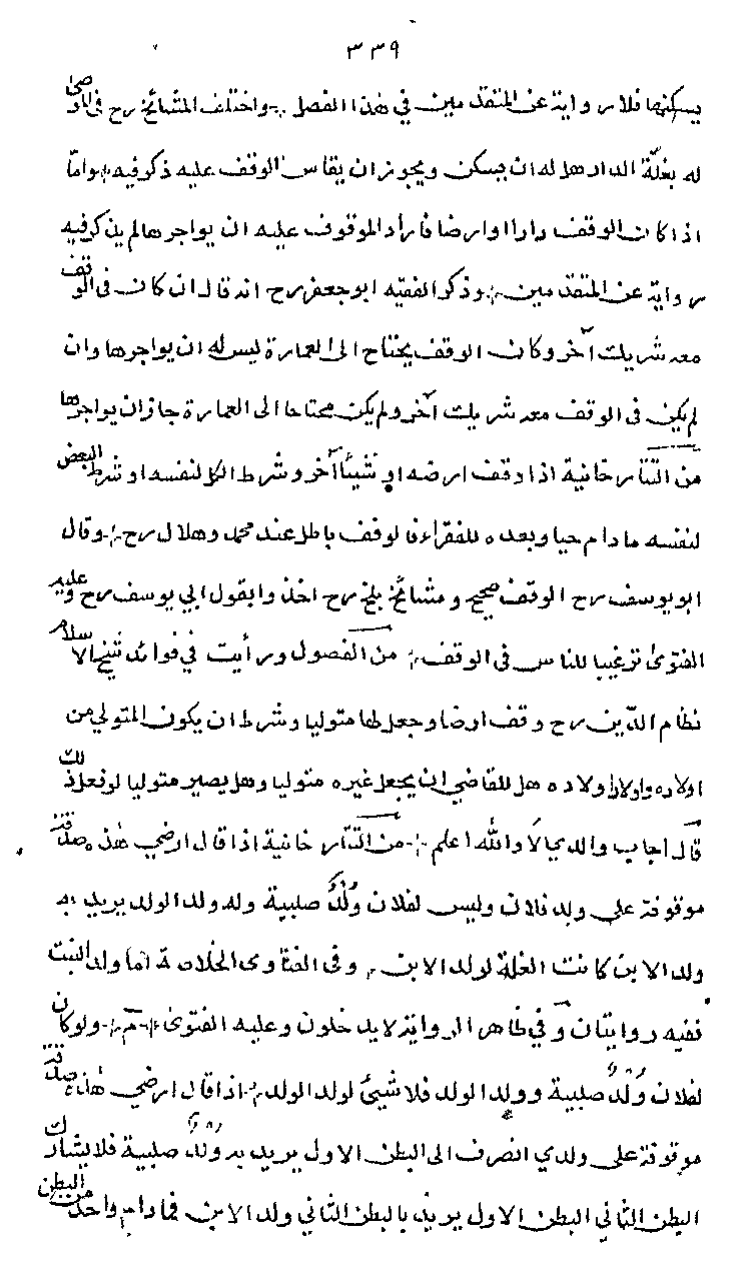 ٣٣٩
يسكنها فلا رواية عن المتقدمين في هذا الفصل واختلف المشائخ رح فى الموصى
له بغلّة الدار هل له ان يسكن ويجوز ان يقاس الوقف عليه ذكر فيه واما
اذا كان الوقف دارا او ارضا فاراد الموقوف عليه ان يواجرها لم يذكر فيه
رواية عن المتقدمين وذكر الفقيه ابو جعفر رح انه قال ان كان فى الوقف
معه شريك آخر وكان الوقف يحتاج الى العمارة ليس له ان يواجرها وان
لم يكن فى الوقف معه شريك آخر ولم يكن محتاجا الى العمارة جاز ان يواجرها
من التتار خانية اذا وقف ارضه او شيئا آخر وشرط الكل لنفسه او شرط البعض
لنفسه ما دام حيا وبعده للفقراء فالوقف باطل عند محمد وهلال رح وقال
ابو يوسف رح الوقف صحيح ومشائخ بلخ رح اخذوا بقول ابي يوسف رح وعليه
الفتوى ترغيبا للناس فى الوقف من الفصول ورأيت في فوائد شيخ الاسلام
نظام الدّين رح وقف ارضا وجعل لها متوليا وشرط ان يكون المتولي من
اولاده واولاد اولاده هل للقاضي ان يجعل غيره متوليا وهل يصير متوليا لو فعل ذلك
قال اجاب والدي لا والله اعلم من التتار خانية اذا قال ارضي هذه صدقة
موقوفة على ولد فلان وليس لفلان ولد صلبية وله ولد الولد يريد به
ولد الابن كانت الغلة لولد الابن وفى الفتاوى الخلاصة اما ولد البنت
ففيه روايتان وفي ظاهر الرواية لا يدخلون وعليه الفتوى م ولو كان
لفلان ولد صلبية وولد الولد فلا شيئ لولد الولد اذا قال ارضي هذه صدقة
موقوفة على ولدي انصرف الى البطن الاول يريد به ولد صلبية فلا يشارك
البطن الثاني البطن الاول يريد بالبطن الثاني ولد الابن فما دام واحد من البطن